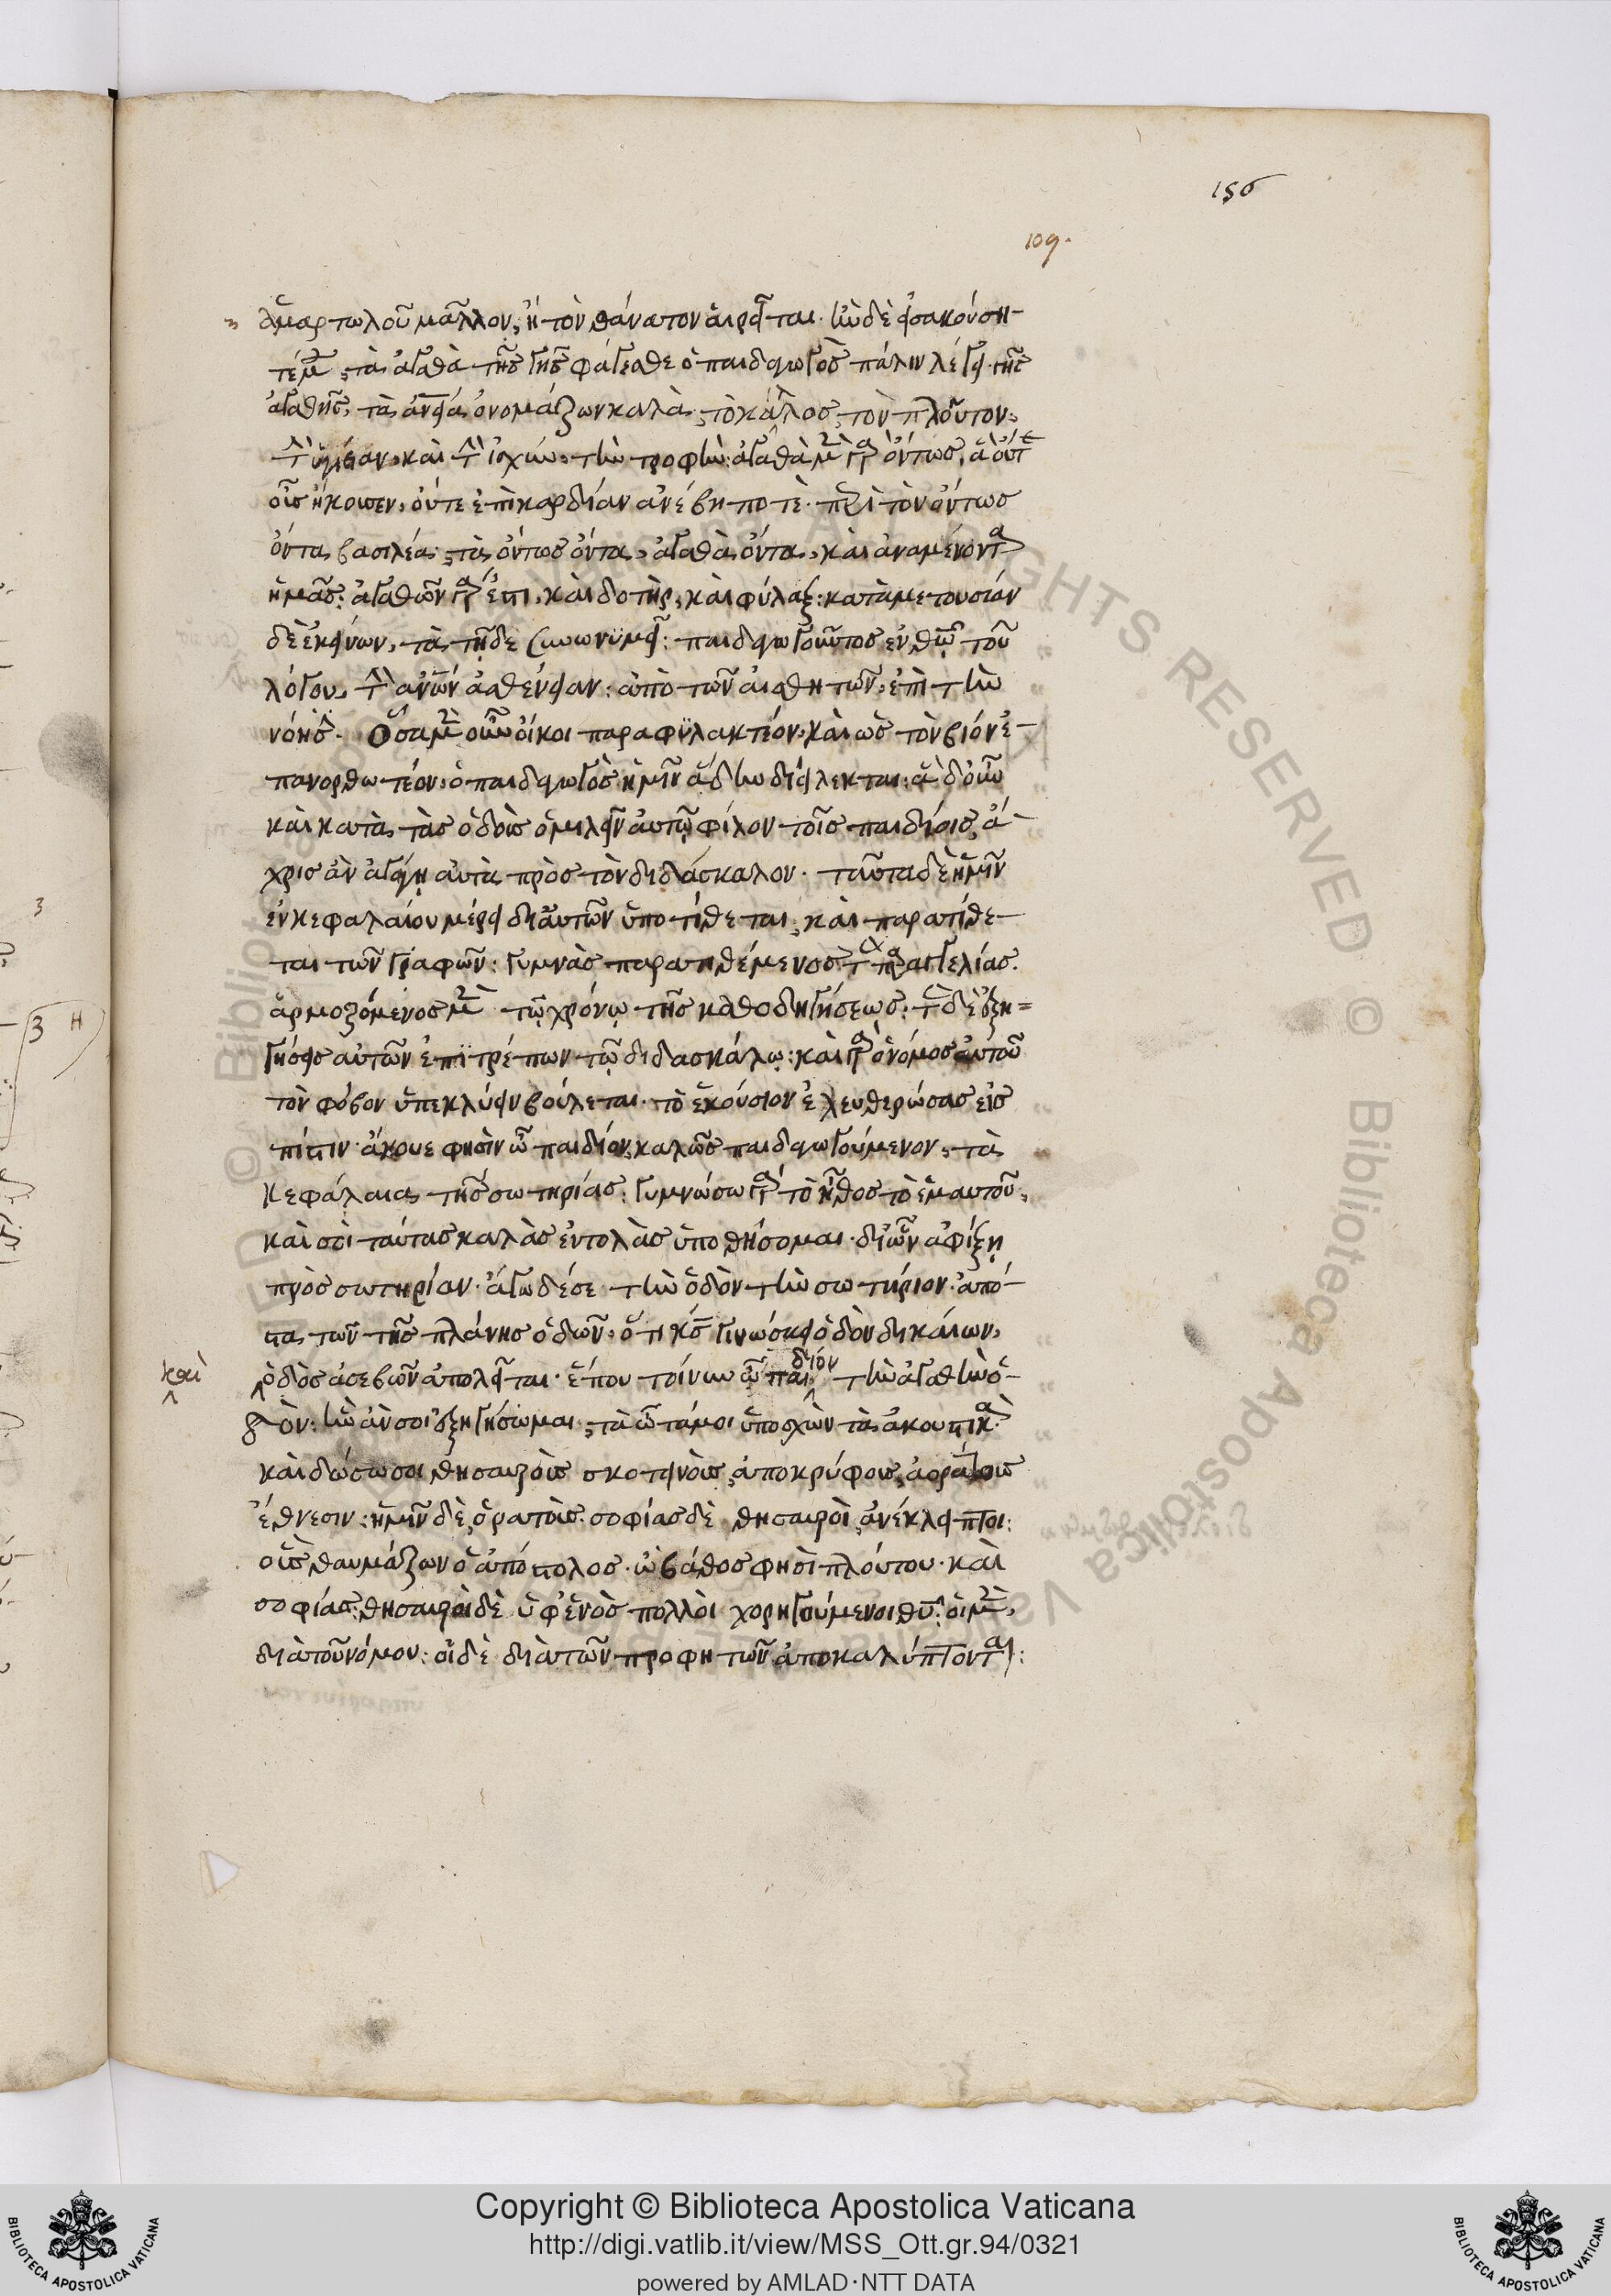 156
109.
ἁμαρτωλοῦ μᾶλλον, ἢ τὸν θάνατον αἱρεῖται. ἢν δὲ εἰσακούση-
τέ μου, τὰ ἀγαθὰ τῆς γῆς φάγεσθε ὁ παιδαγωγὸς πάλιν λέγει. τῆς
ἀγαθῆς, τὰ ἀνεια ὀνομάζων καλὰ, τὸ κάλλος, τὸν πλοῦτον,
τὴν ὑγίειαν, καὶ τὴν ἰσχὺν, τὴν τροφὴν: ἀγαθὰ μὲν γὰρ ὄντως, ἃ οὔτε
οὖς ἤκουσεν, οὔτε ἐπὶ καρδίαν ἀνέβη ποτὲ. περὶ τὸν ὄντως
ὄντα βασιλέα, τὰ ὄντως ὄντα, ἀγαθὰ ὄντα, καὶ ἀναμένοντα
ἡμᾶς: ἀγαθῶν γάρ ἐστι, καὶ δοτὴρ, καὶ φύλαξ: κατὰ μετουσίαν
δὲ ἐκείνων, τὰ τῇδε συνωνυμεῖ: παιδαγωγοῦντος ἐν θῶ τοῦ
λόγου, τὴν ἀνων ἀσθένειαν: ἀπὸ τῶν αἰσθητῶν, ἐπὶ τὴν
νόησ. Ὅσα μὲν οὖν οἴκοι παραφυλακτέον, καὶ ὡς τὸν βίον ἐ-
πανορθωτέον, ὁ παιδαγωγὸς ἡμῖν ἅδην διείλεκται: ἃ δ' οὖν
καὶ κατὰ τὰς ὁδοὺς ὁμιλεῖν αὐτῷ φίλον τοῖς παιδίοις, ἄ-
χρις ἂν ἀγάγῃ αὐτὰ πρὸς τὸν διδάσκαλον. ταῦτα δὲ ἡμῖν
ἐν κεφαλαίου μέρει δι' αὐτῶν ὑποτίθεται, καὶ παρατίθε-
ται τῶν γραφῶν: γυμνὰς παρατιθέμενος τὰς παραγγελίας.
ἁρμοζόμενος μὲν τῷ χρόνῳ τῆς καθοδηγήσεως: τὰς δὲ ἐξη-
γήσεις αὐτῶν ἐπιτρέπων τῷ διδασκάλῳ: καὶ γὰρ ὁ νόμος αὐτοῦ
τὸν φόβον ὑπεκλύειν βούλεται. τὸ ἑκούσιον ἐλευθερώσας εἰς
πίστιν. ἄκουε φησὶν ὦ παιδίον, καλῶς παιδαγωγούμενον, τὰ
κεφάλαια τῆς σωτηρίας: γυμνώσω γὰρ τὸ ἦθος τὸ ἐμαυτοῦ,
καὶ σοὶ ταύτας καλὰς ἐντολὰς ὑποθήσομαι. δι' ὧν ἀφίξῃ
πρὸς σωτηρίαν. ἄγω δέ σε τὴν ὁδὸν τὴν σωτήριον. ἀπό-
στα τῶν τῆς πλάνης ὁδῶν, ὅτι κσ γινώσκει ὁδὸν δικαίων,
καὶ ὁδὸς ἀσεβῶν ἀπολεῖται. ἕπου τοίνυν ὦ παιδίον τὴν ἀγαθὴν ὁ-
δὸν: ἣν ἄν σοι ἐξηγήσωμαι, τὰ ὦτά μοι ὑποσχὼν τὰ ἀκουστικὰ.
καὶ δώσω σοι θησαυροὺς σκοτεινοὺς, ἀποκρύφους, ἀοράτους
ἔθνεσιν: ἡμῖν δὲ, ὁρατοὺς. σοφίας δὲ θησαυροὶ, ἀνέκλειπτοι:
οὓς θαυμάζων ὁ ἀπόστολος. ὦ βάθος φησὶ πλούτου. καὶ
σοφίας: θησαυροὶ δὲ ὑφ' ἑνὸς πολλοὶ χορηγούμενοι θυ: οἱ μὲν,
διὰ τοῦ νόμου: οἱ δὲ διὰ τῶν προφητῶν ἀποκαλύπτονται:
Copyright © Biblioteca Apostolica Vaticana
http://digi.vatlib.it/view/MSS_Ott.gr.94/0321
powered by AMLAD·NTT DATA